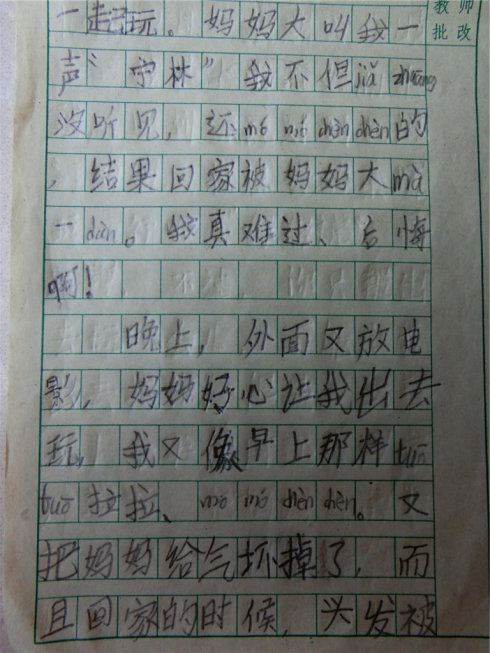 教师
批改
一起玩。妈妈大叫我一
声“宁林”我不但jiǎ zhuāng
没听见，还mó mó chèn chèn的
，结果回家被妈妈大mà
一dùn。我真难过、后悔
啊！
晚上，外面又放电
影，妈妈好心让我出去
玩，我又像早上那样tuō
tuō拉拉、mó mó chèn chèn。又
把妈妈给气坏掉了，而
且回家的时候，头发被